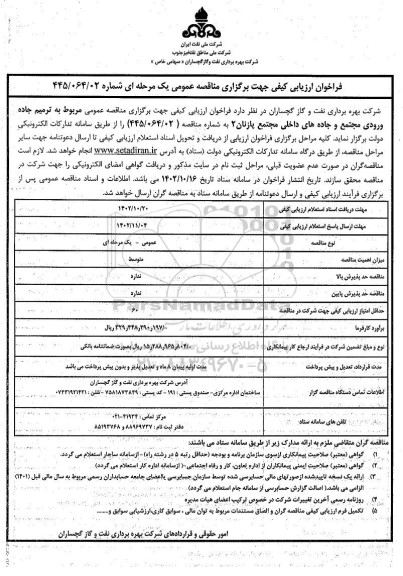 شرکت ملی نفت ایران
شرکت ملی مناطق نفتخیز جنوب
شرکت بهره برداری نفت و گاز گچساران « سهامی خاص »
فراخوان ارزیابی کیفی جهت برگزاری مناقصه عمومی یک مرحله ای شماره ۴۴۵/۰۶۴/۰۲
شرکت بهره برداری نفت و گاز گچساران در نظر دارد فراخوان ارزیابی کیفی جهت برگزاری مناقصه عمومی مربوط به ترمیم جاده
ورودی مجتمع و جاده های داخلی مجتمع پازنان۲ به شماره مناقصه ( ۴۴۵/۰۶۴/۰۲) را از طریق سامانه تدارکات الکترونیکی
دولت برگزار نماید. کلیه مراحل برگزاری فراخوان ارزیابی از دریافت و تحویل اسناد استعلام ارزیابی کیفی تا ارسال دعوتنامه جهت سایر
مراحل مناقصه، از طریق درگاه سامانه تدارکات الکترونیکی دولت (ستاد) به آدرس www.setadiran.ir انجام خواهد شد. لازم است
مناقصه‌گران در صورت عدم عضویت قبلی، مراحل ثبت نام در سایت مذکور و دریافت گواهی امضای الکترونیکی را جهت شرکت در
مناقصه محقق سازند. تاریخ انتشار فراخوان در سامانه ستاد تاریخ ۱۴۰۲/۱۰/۱۶ می باشد. اطلاعات و اسناد مناقصه عمومی پس از
برگزاری فرآیند ارزیابی کیفی و ارسال دعوتنامه از طریق سامانه ستاد به مناقصه گران ارسال خواهد شد.
مهلت دریافت اسناد استعلام ارزیابی کیفی ۱۴۰۲/۱۰/۲۰
مهلت ارسال پاسخ استعلام ارزیابی کیفی ۱۴۰۲/۱۱/۰۴
نوع مناقصه عمومی - یک مرحله ای
میزان اهمیت مناقصه متوسط
مناقصه حد پذیرش بالا ندارد
مناقصه حد پذیرش پایین ندارد
حداقل امتیاز ارزیابی کیفی جهت شرکت در مناقصه ۶۰
برآورد کارفرما
نوع و مبلغ تضمین شرکت در فرآیند ارجاع کار پیمانکاری ریال بصورت ضمانتنامه بانکی
مدت قرارداد، تعدیل و پیش پرداخت مدت اولیه پیمان ۸ ماه و تعدیل پذیر و بدون پیش پرداخت می باشد
اطلاعات تماس دستگاه مناقصه گزار آدرس شرکت بهره برداری نفت و گاز گچساران
ساختمان اداره مرکزی- صندوق پستی : ۱۹۱ - کد پستی :
تلفن های سامانه ستاد مرکز تماس : ۴۱۹۳۴-۰۲۱
دفتر ثبت نام : ۸۸۹۶۹۷۳۷ و ۸۵۱۹۳۷۶۸
مناقصه گران متقاضی ملزم به ارائه مدارک زیر از طریق سامانه ستاد می باشند:
۱) گواهی (معتبر) صلاحیت پیمانکاری ازسوی سازمان برنامه و بودجه (حداقل رتبه ۵ در رشته راه) - ازسامانه ساجار استعلام می گردد.
۲) گواهی (معتبر) صلاحیت ایمنی پیمانکاران از اداره (تعاون، کار و رفاه اجتماعی) - (ازسامانه اداره کار استعلام می گردد)
۳) ارائه یک نسخه تاییدشده ازصورتهای مالی حسابرسی شده توسط سازمان حسابرسی یا اعضای جامعه حسابداران رسمی مربوط به سال مالی قبل (۱۴۰۱)
الزامی می باشد( اصالت گزارش حسابرسی از سامانه جام استعلام می گردد)
۴) روزنامه رسمی آخرین تغییرات شرکت در خصوص ترکیب اعضای هیات مدیره
۵) تکمیل فرم ارزیابی کیفی مناقصه گران و الصاق مستندات مربوط به توان مالی ، سوابق کاری،ارزشیابی سوابق و.....
امور حقوقی و قراردادهای شرکت بهره برداری نفت و گاز گچساران